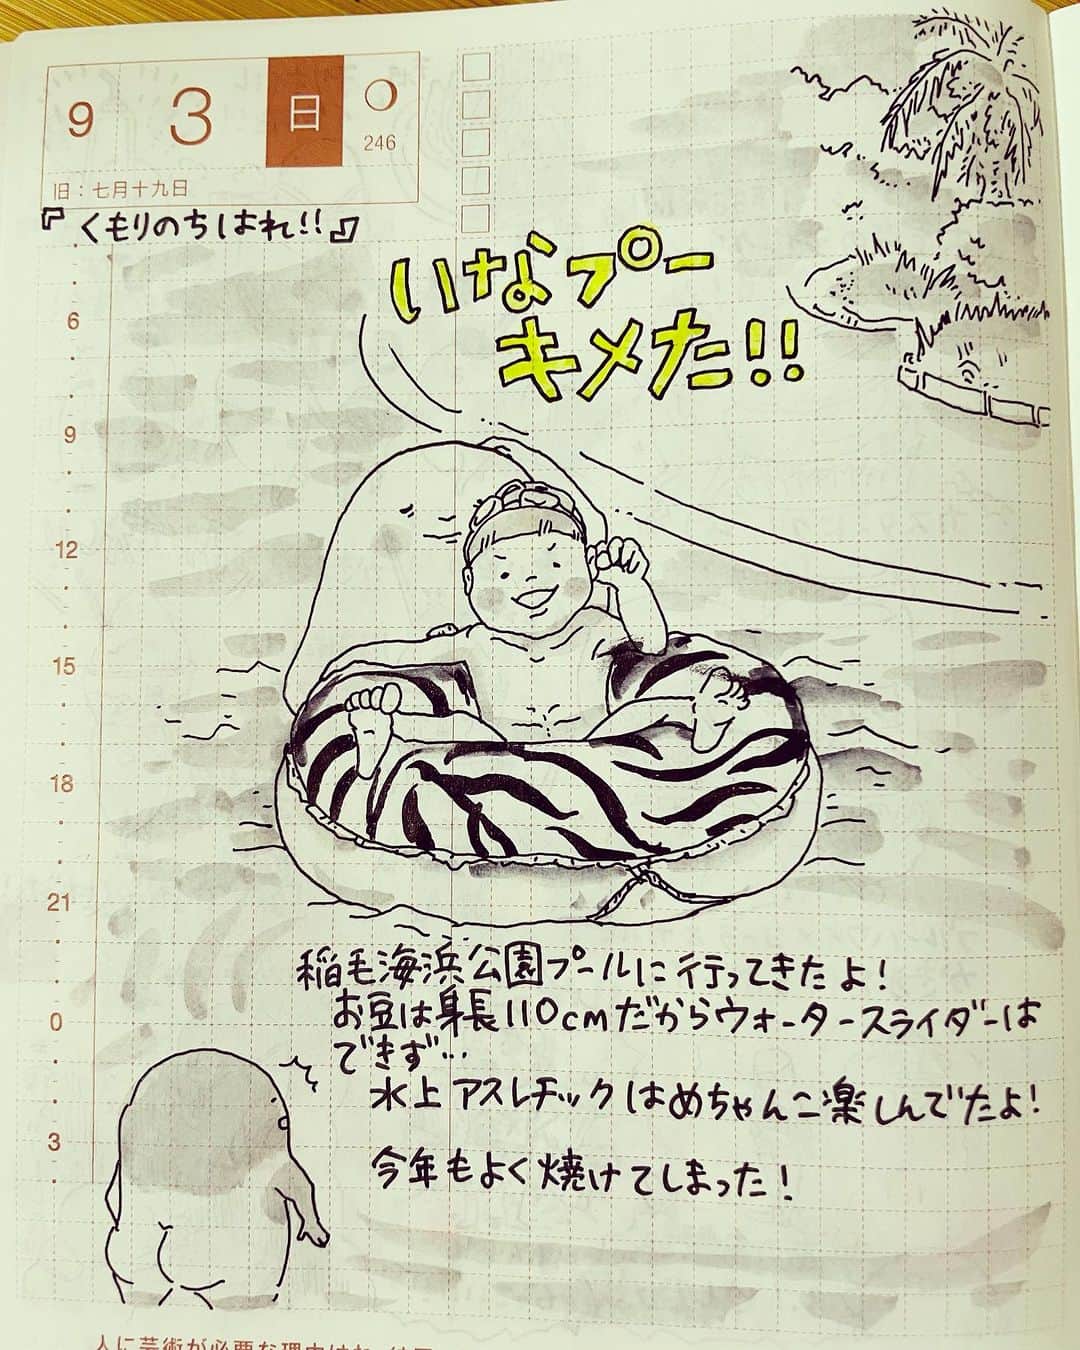 9 3 日
246
旧：七月十九日
『くもりのちはれ!!』
いなプー
キメた!!
6
9
12
15
18
21
0
3
稲毛海浜公園プールに行ってきたよ!
お豆は身長110cmだからウォータースライダーは
できず…
水上アスレチックはめちゃんこ楽しんでたよ!
今年もよく焼けてしまった!
人に芸術が必要な理由は